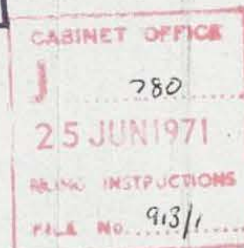 CABINET OFFICE
J 780
25 JUN 1971
FILING INSTRUCTIONS
FILE No. 913/1